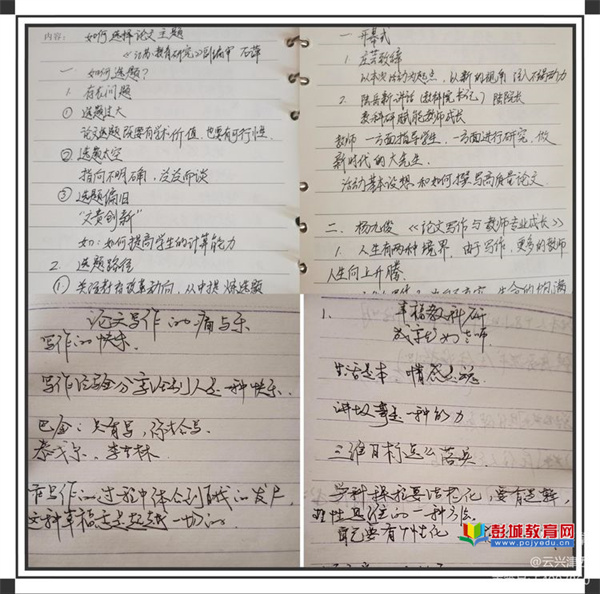 内容: 如何选择论文主题
《江苏教育研究》副编审 石萍
一 如何选题?
1. 存在问题
① 选题过大
论文选题既要有学术价值,也要有可行性.
② 选题太空
指向不明确,泛泛而谈
③ 选题偏旧
"文贵创新"
如: 如何提高学生的计算能力
2. 选题路径
① 关注教育改革动向,从中提炼选题
一 开幕式
1. 庄芸致辞
以本次活动为起点,以新的视角 注入不竭动力
2. 陆岳新讲话(教科院书记) 陆院长
教科研赋能教师成长
教师 一方面指导学生,一方面进行研究,做
新时代的大先生.
活动基本设想 和如何撰写高质量论文.
二、杨九俊《论文写作与教师专业成长》
1. 人生有两种境界,由于写作,更多的教师
人生向上升腾.
论文写作的痛与乐
写作的快乐.
写作经验分享给别人是一种快乐.
巴金: 只有写,你才会写.
泰戈尔、李吉林
在写作的过程中体会到成的发尸
这种幸福是超越一切的.
1. 幸福教科研
生活是本,情感是魂
讲故事是一种能力
三维目标怎么落实
学科课程要活起化,要有
思维的一种方法.
要有个性化
彭城教育网
www.pcjyedu.cn
@云兴津